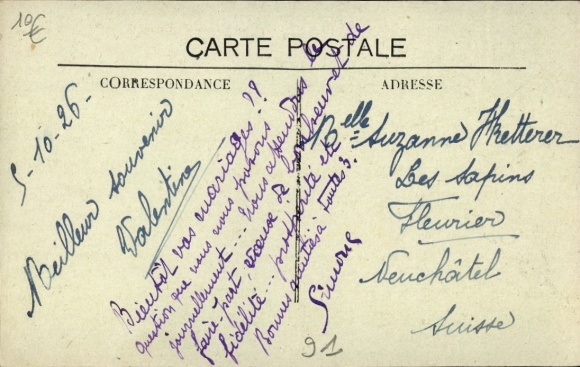 10€
CARTE POSTALE
CORRESPONDANCE
ADRESSE
5-10-26-
Meilleur souvenir
Valentine
Bientôt vos mariages ??
question que nous nous posons
journellement... Nous attendons le
faire-part, sceau de bonheur et de
fidélité... prospérité etc
Bonnes amitiés à toutes 3.
Simone
Melle Suzanne
Les Sapins
Fleurier
Neuchâtel
Suisse
91